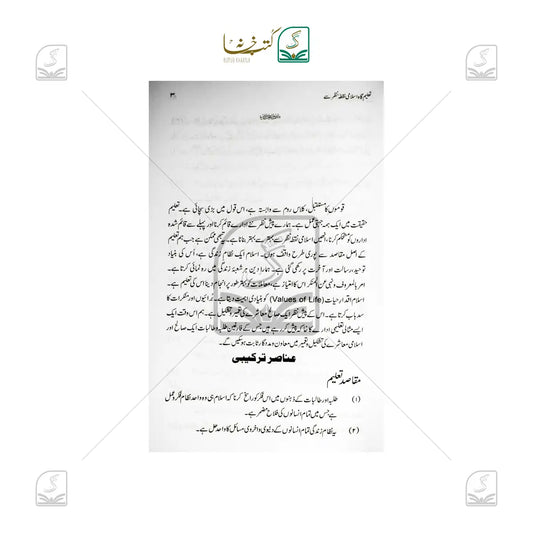 کتب خانہ
تعلیم گاہ اسلامی نقطۂ نظر سے
۳
قوموں کا مستقبل، کلاس روم سے وابستہ ہے، اس قول میں بڑی سچائی ہے۔ تعلیم
حقیقت میں ایک ہمہ جہتی عمل ہے۔ ہمارے پیش نظر نئے ادارے قائم کرنا اور پہلے سے قائم شدہ
اداروں کو مستحکم کرنا، انھیں اسلامی نقطۂ نظر سے بہتر سے بہتر بنانا ہے۔ یہ تبھی ممکن ہے جب ہم تعلیم
کے اصل مقاصد سے پوری طرح واقف ہوں۔ اسلام ایک نظام زندگی ہے، اُس کی بنیاد
توحید، رسالت اور آخرت پر رکھی گئی ہے۔ ہمارا دین ہر شعبۂ زندگی میں رہ نمائی کرتا ہے۔
امر بالمعروف و نہی عن المنکر اس کا امتیاز ہے، معاملات کو بہتر طور پر انجام دینا اس کی تعلیم ہے۔
اسلام اقدارِ حیات (Values of Life) کو بنیادی اہمیت دیتا ہے۔ برائیوں اور منکرات کا
سدباب کرتا ہے۔ اس کے پیش نظر ایک صالح معاشرے کی تعمیر و تشکیل ہے۔ ہم اس وقت ایک
ایسے مثالی تعلیمی ادارے کا خاکہ پیش کر رہے ہیں جس کے فارغین طلبہ و طالبات ایک صالح اور
اسلامی معاشرے کی تشکیل و تعمیر میں معاون و مددگار ثابت ہو سکیں گے۔
عناصر ترکیبی
مقاصد تعلیم
(۱) طلبہ اور طالبات کے ذہنوں میں اس فکر کو راسخ کرنا کہ اسلام ہی وہ واحد نظام فکر و عمل
ہے جس میں تمام انسانوں کی فلاح مضمر ہے۔
(۲) یہ نظام زندگی تمام انسانوں کے دنیوی و اخروی مسائل کا واحد حل ہے۔